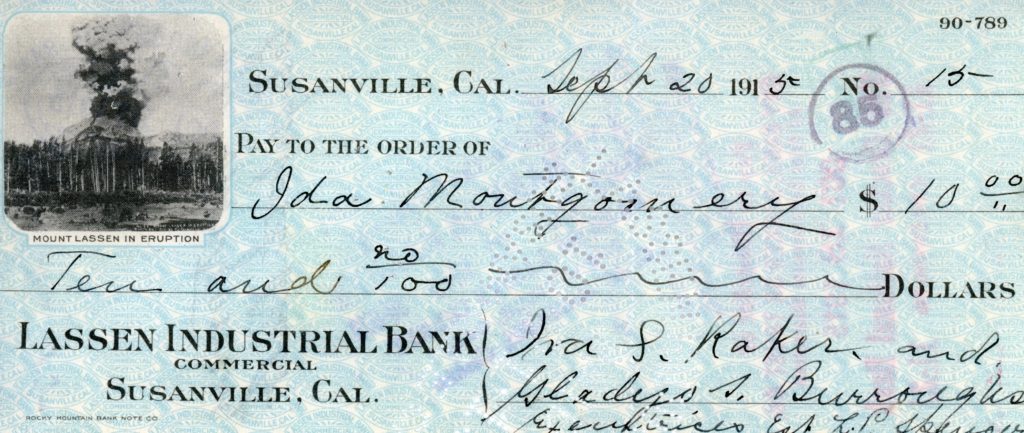 90-789
SUSANVILLE, CAL. Sept 20 1915 No. 15
85
PAY TO THE ORDER OF
Ida Montgomery $ 10 00
MOUNT LASSEN IN ERUPTION
Ten and no/100 DOLLARS
LASSEN INDUSTRIAL BANK
COMMERCIAL
SUSANVILLE, CAL.
Iva S. Raker. and
Gladys S. Burroughs
Executrices Est L.P. Spencer
ROCKY MOUNTAIN BANK NOTE CO.